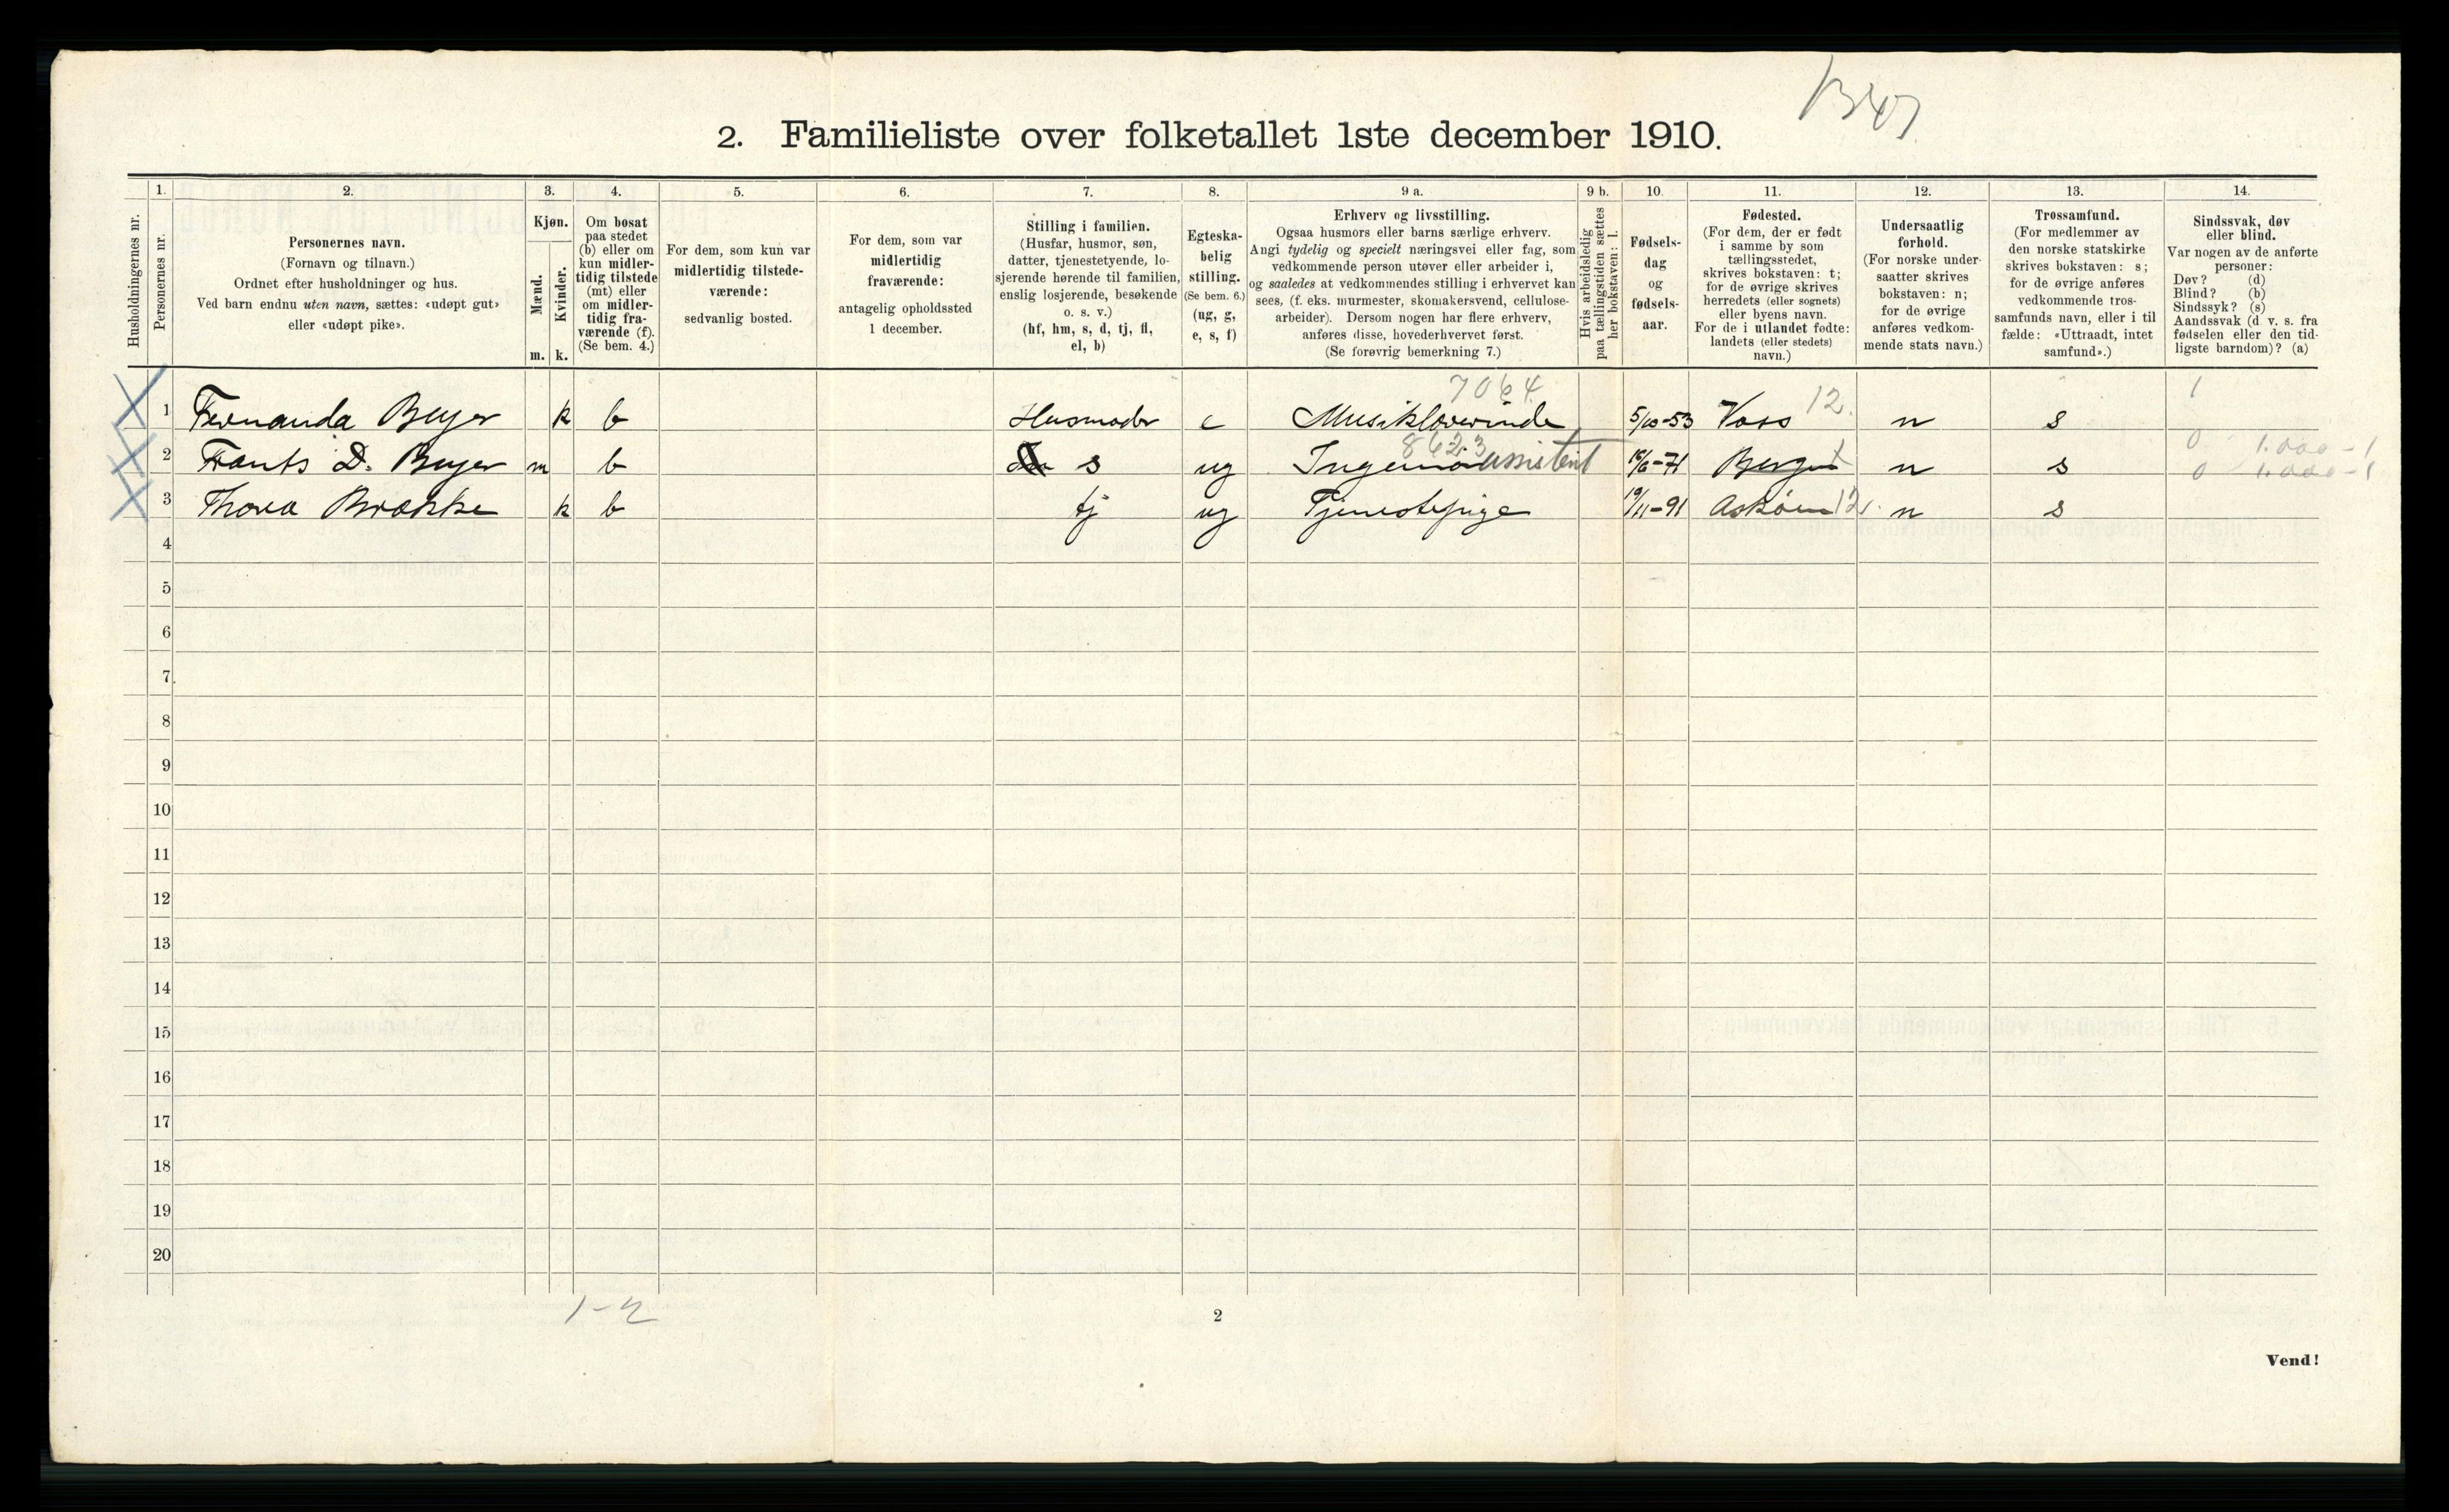 B47
2. Familieliste over folketallet 1ste december 1910.
Husholdningernes nr.
1.
Personernes nr.
2.
Personernes navn.
(Fornavn og tilnavn.)
Ordnet efter husholdninger og hus.
Ved barn endnu uten navn, sættes: «udøpt gut»
eller «udøpt pike».
3.
Kjøn.
Mænd.
Kvinder.
m. k.
4.
Om bosat
paa stedet
(b) eller om
kun midler-
tidig tilstede
(mt) eller
om midler-
tidig fra-
værende (f).
(Se bem. 4.)
5.
For dem, som kun var
midlertidig tilstede-
værende:
sedvanlig bosted.
6.
For dem, som var
midlertidig
fraværende:
antagelig opholdssted
1 december.
7.
Stilling i familien.
(Husfar, husmor, søn,
datter, tjenestetyende, lo-
sjerende hørende til familien,
enslig losjerende, besøkende
o. s. v.)
(hf, hm, s, d, tj, fl,
el, b)
8.
Egteska-
belig
stilling.
(Se bem. 6.)
(ug, g,
e, s, f)
9 a.
Erhverv og livsstilling.
Ogsaa husmors eller barns særlige erhverv.
Angi tydelig og specielt næringsvei eller fag, som
vedkommende person utøver eller arbeider i,
og saaledes at vedkommendes stilling i erhvervet kan
sees, (f. eks. murmester, skomakersvend, cellulose-
arbeider). Dersom nogen har flere erhverv,
anføres disse, hovederhvervet først.
(Se forøvrig bemerkning 7.)
9 b.
Hvis arbeidsledig
paa tællingstiden sættes
her bokstaven: l.
10.
Fødsels-
dag
og
fødsels-
aar.
11.
Fødested.
(For dem, der er født
i samme by som
tællingsstedet,
skrives bokstaven: t;
for de øvrige skrives
herredets (eller sognets)
eller byens navn.
For de i utlandet fødte:
landets (eller stedets)
navn.)
12.
Undersaatlig
forhold.
(For norske under-
saatter skrives
bokstaven: n;
for de øvrige
anføres vedkom-
mende stats navn.)
13.
Trossamfund.
(For medlemmer av
den norske statskirke
skrives bokstaven: s;
for de øvrige anføres
vedkommende tros-
samfunds navn, eller i til
fælde: «Uttraadt, intet
samfund».)
14.
Sindssvak, døv
eller blind.
Var nogen av de anførte
personer:
Døv? (d)
Blind? (b)
Sindssyk? (s)
Aandssvak (d v. s. fra
fødselen eller den tid-
ligste barndom)? (a)
7064 1
1 Fernanda Beyer k b Husmoder e Musiklærerinde 5/10-53 Voss 12. n s
8623 0 1.000-1
2 Frants D. Beyer m b s ug Ingeniørassistent 16/6-71 Bergen t n s
0 1.000-1
3 Thora Brække k b tj ug Tjenestepige 19/11-91 Askøen 12. n s
4
5
6
7
8
9
10
11
12
13
14
15
16
17
18
19
20
1-2
2
Vend!